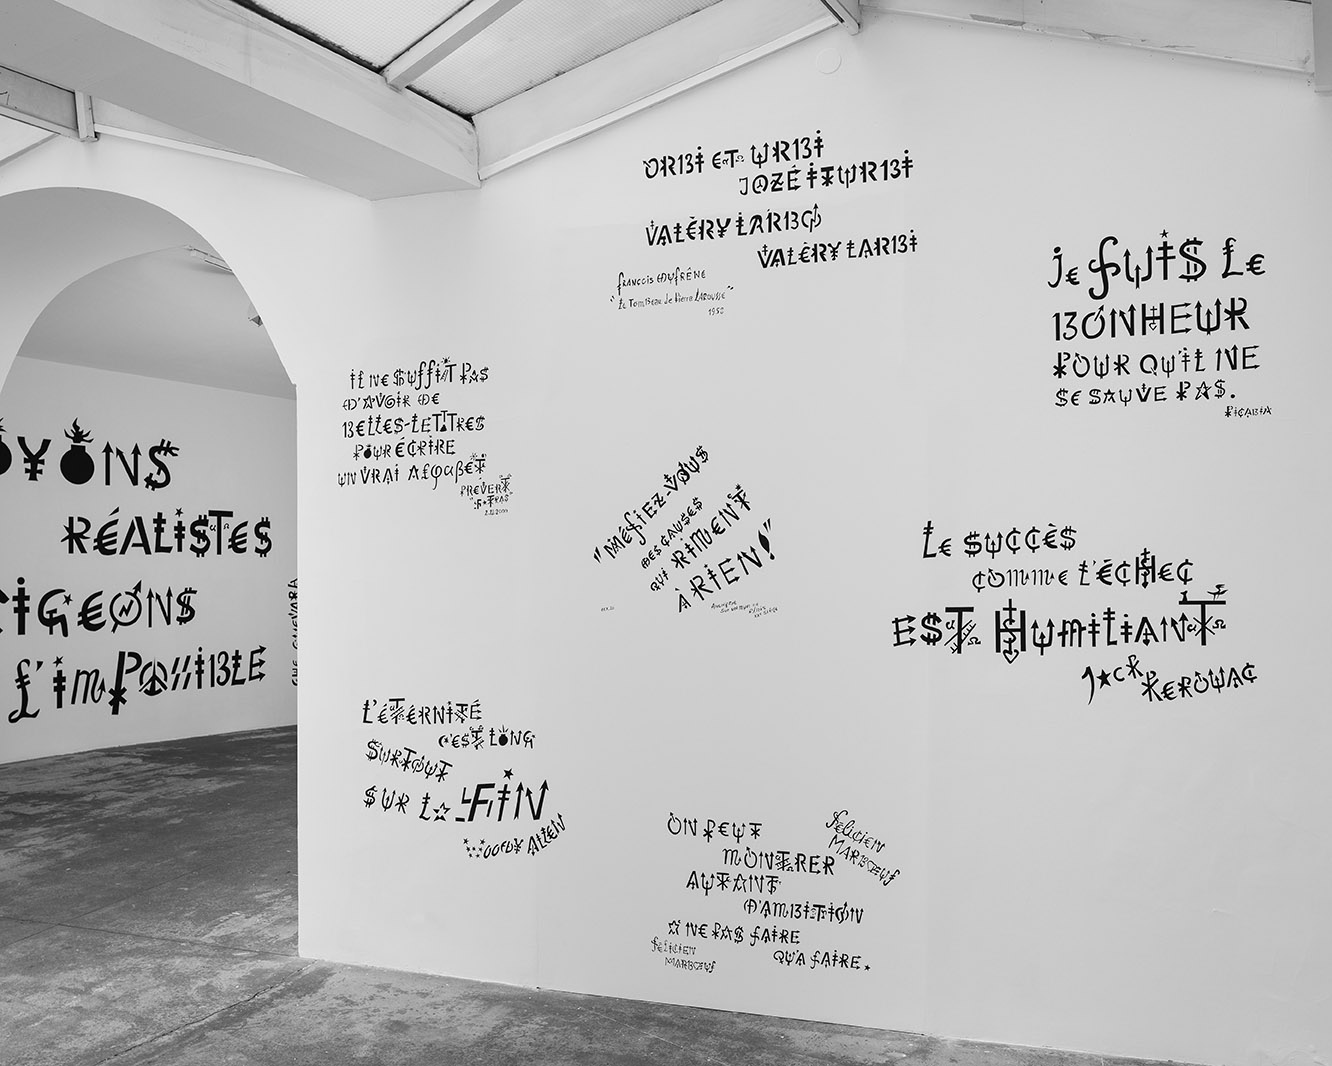 ORBI ET URBI
JOZÉ ITURBI
VALÉRY LARBO
VALÉRY LARBI
FRANÇOIS DUFRÊNE
"LE TOMBEAU DE PIERRE LAROUSSE"
1952
JE FUIS LE
BONHEUR
POUR QU'IL NE
SE SAUVE PAS.
PICABIA
IL NE SUFFIT PAS
D'AVOIR DE
BELLES-LETTRES
POUR ÉCRIRE
UN VRAI ALPHABET
PRÉVERT
"FATRAS"
"MÉFIEZ-VOUS
DES CAUSES
QUI RIMENT
À RIEN!"
LE SUCCÈS
COMME L'ÉCHEC
EST HUMILIANT
JACK KEROUAC
OYONS
RÉALISTES
IGEONS
L'IMPOSSIBLE
CHE GUEVARA
L'ÉTERNITÉ
C'EST LONG
SURTOUT
SUR LA FIN
WOODY ALLEN
ON PEUT
MONTRER
AUTANT
D'AMBITION
À NE PAS FAIRE
QU'A FAIRE.
FÉLICIEN
MARBŒUF
FÉLICIEN
MARBŒUF